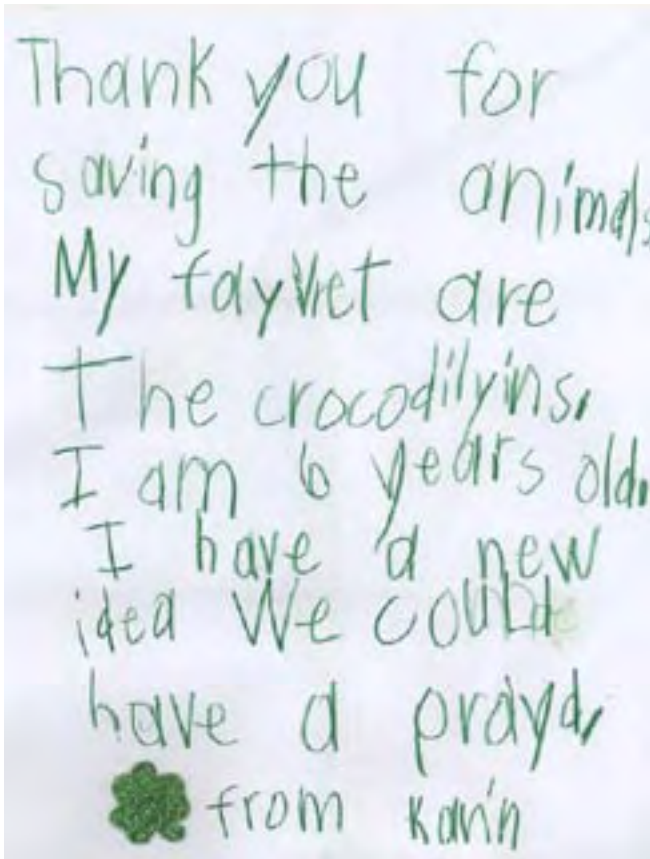 Thank you for
saving the animals
My fayvret are
The crocodilyins.
I am 6 years old.
I have a new
idea We could
have a prayd.
from Karin